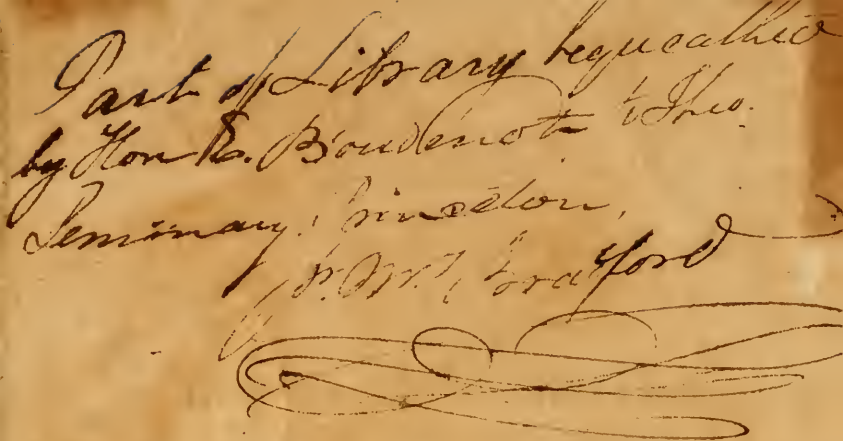 Part of Library bequeathed
by Hon E. Boudenot to Theo.
Seminary. Princeton,
Bradford